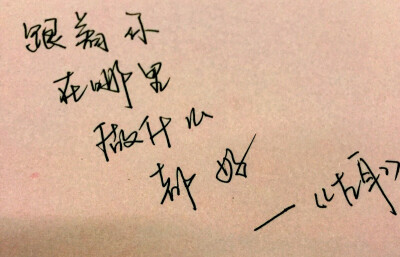 跟着你
在哪里
做什么
都好
—《去耳》